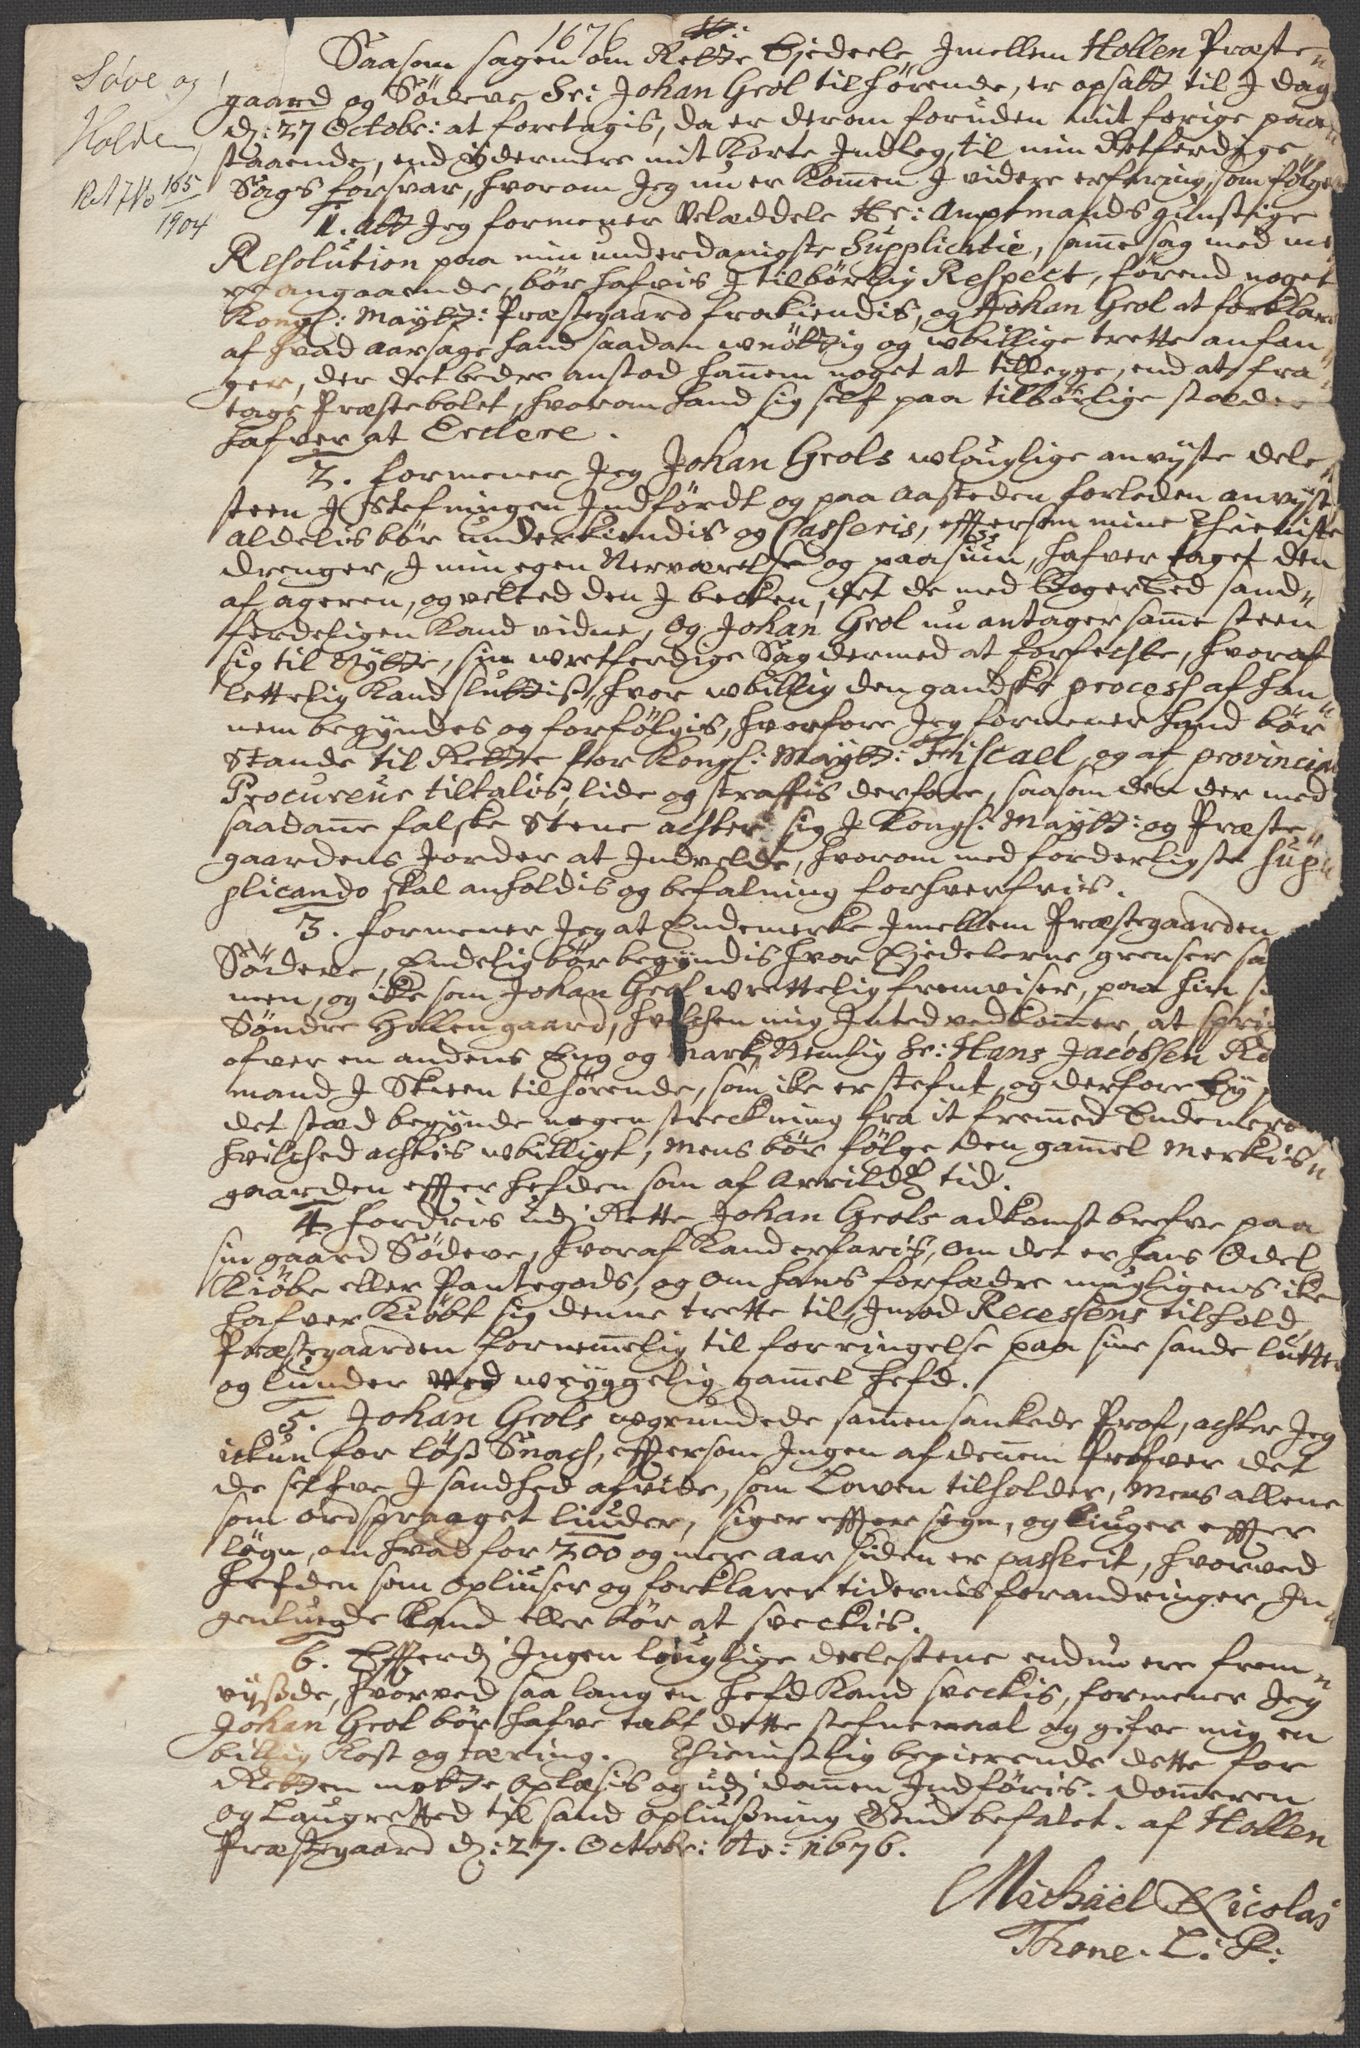 1676
Søve og
Holden
165
1904
Saasom sagen om Rette Ejedeele, Jmellem Hollen Præste¬
gaard og Södeve Sr: Johan Geol tilhørende, er opsatt til J dag
d: 27 Octobr: at foretagis, da er derom foruden mit forige paa¬
staaende, end ydermere mit korte Indleg, til min Retferdige
Sags forsvar, hvorom Jeg nu er kommen J videre erfaring, som følger
1. Att Jeg formener Velædele Hr: Amptmands gunstige
Resolution paa min underdanigste Supplicatie, samme sag med me
re angaaende, bör hafvis J tilbörlig Respect, förend noget
Kongl: Maÿtz: Præstegaard frakiendis, og Johan Geol at forklare
af hvad aarsage hand saadan unöttig og ubillige trette anfan¬
ger, der det bedre anstod hannem noget at tillegge, end at fra
tage Præstebolet, hvorom hand sig self paa tilbörlige stæder
hafver at Erclere.
2. formener Jeg Johan Geols ulouglige anvÿste dele
steen J Stefningen Indfördt og paa Aasteden forleden anvÿst
aldelis bör underkiendis og Casseris, efftersom mine Thieniste
drenger, J min egen Nerværelse og paasiun, hafver taget den
af ageren, og velted den J becken, det de med Boger Eed sand¬
ferdeligen kand vidne, og Johan Geol nu antager samme steen
sig til Nÿtte, sin uretferdige Sag dermed at forfechte, hvoraf
lettelig kand sluttis, hvor ubillig den gandske process af han¬
nem begÿndes og forfölgis, hvorfore Jeg formener hand bör
Stande til Rette for Kongl: Maÿtz: Fiscael, og af provincial
Procureur tiltalis, lide og straffis derfore, saasom den der med
saadanne falske Stene achter sig J Kongl: Maÿtz: og Præste¬
gaardens Jorder at Indvelde, hvorom med forderligste sup¬
plicando skal anholdis og befalning forhverfvis.
3. formener Jeg at Endemerke Jmellem Præstegaarden
Södeve, Endelig bör begÿndis hvor Ejedelerne grenser sa
men, og ike som Johan Geol urettelig fremviser, paa hin si
Söndre Hollen gaard, hvilchen mig Inted vedkommer, at sprin
ofver en andens Eng og Mark, Nemlig Sr: Hans Jacobsen
mand J Skeen tilhörende, som ike er stefnt, og derfore
det stæd begÿnde nogen streckning fra it fremmed Endemerke
hvilched achtis ubilligt, Mens bör fölge den gammel Merkis¬
gaarden effter hefden som af Arrildz tid.
4. fordris udj Rette Johan Geols adkomst brefve paa
sin gaard Södeve, hvoraf kand erfaris, om det er hans Odel,
Kiöbe eller Pantegods, og om hans forfædre mugligens ike
hafver Kiöbt sig denne trette til, Jmod Recessens tilhold,
Præstegaarden fornemmelig til forringelse paa sine sande lutter
og lunder ved urÿggelig gammel hefd.
5. Johan Geols ugrundede sammensankede Prof, achter Jeg
ickun for löss Snach, efftersom Ingen af dennem Profver det
de selfve J sandhed afvide, som Lowen tilholder, Mens allene
som ordspraaget liuder, siger effter sign, og liuger effter
lögn, om hvad for 200 og mere aar siden er passeret, hvorved
hefden som oplinser og forklarer tidernis forandringer, In¬
genlunde kand eller bör at svekis.
6. Efferdj Ingen louglige deelestene endnu ere frem¬
vÿssde, hvorved saa lang en hefd kand svekis, formener Jeg
Johan Geol bör hafve tabt dette stefnemaal og gifve mig en
billig kost og tæring. Thienstlig begierende dette for
Retten motte oplæsis og udj dommen Indföris. Dommeren
og Laugretted til sand opliussning Gud befalet. af Hollen
Præstegaard d: 27. Octobr: Ao: 1676.
Michäel Nicolai
Thone. L: P: